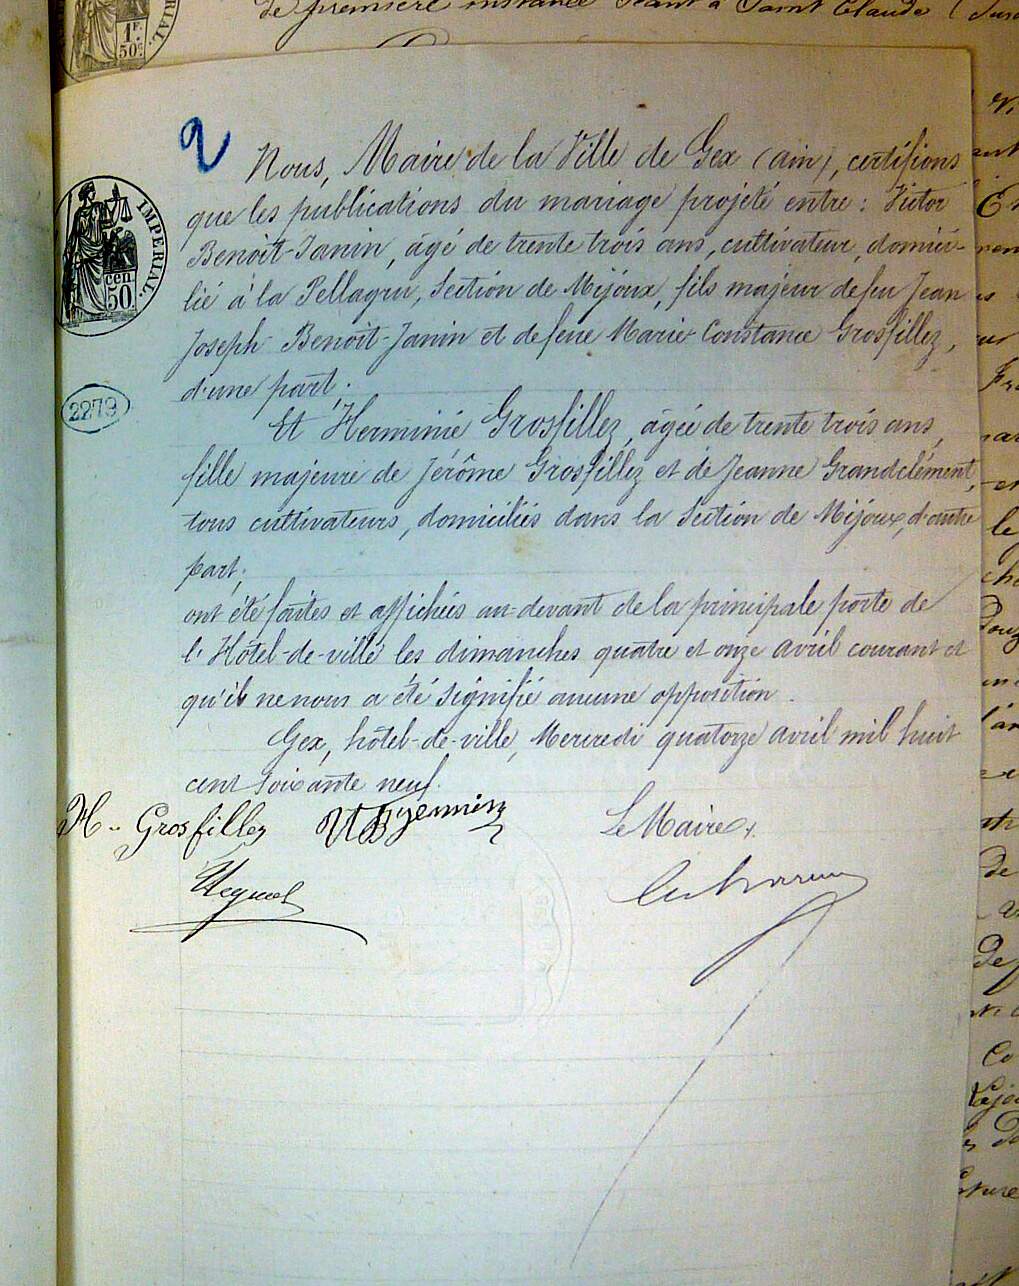 de première instance séant à Saint Claude (Jura
1F.
50c
2
Nous, Maire de la Ville de Gex (ain), certifions
que les publications du mariage projeté entre : Victor
Benoit-Janin, âgé de trente trois ans, cultivateur, domici-
IMPERIAL.
cen.
50
lié à la Pellagru, Section de Mijoux, fils majeur de feu Jean
Joseph Benoît-Janin et de feue Marie Constance Grosfillez,
d'une part;
2279
Et Herminie Grosfillez, âgée de trente trois ans,
fille majeure de Jérôme Grosfillez et de Jeanne Grandclément,
tous cultivateurs, domiciliés dans la Section de Mijoux, d'autre
part;
ont été faites et affichées au-devant de la principale porte de
l'Hôtel-de-ville les dimanches quatre et onze avril courant et
qu'il ne nous a été signifié aucune opposition.
Gex, hôtel-de-ville, Mercredi quatorze avril mil huit
cent soixante neuf.
H. Grosfillez
Le Maire